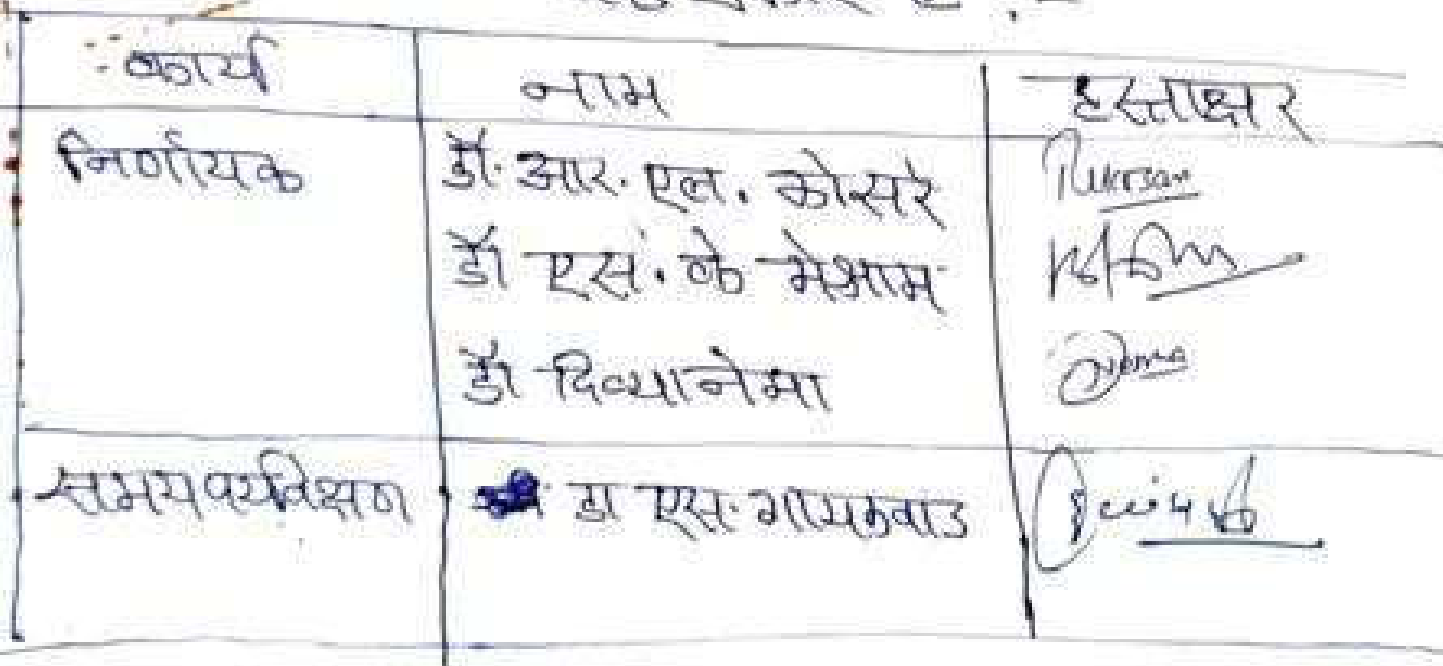 कार्य नाम हस्ताक्षर
निर्णायक डॉ. आर. एल. कोसरे
डॉ एस. के मेश्राम
डॉ दिव्या नेमा
समय पर्यवेक्षण डा एस. गायकवाड